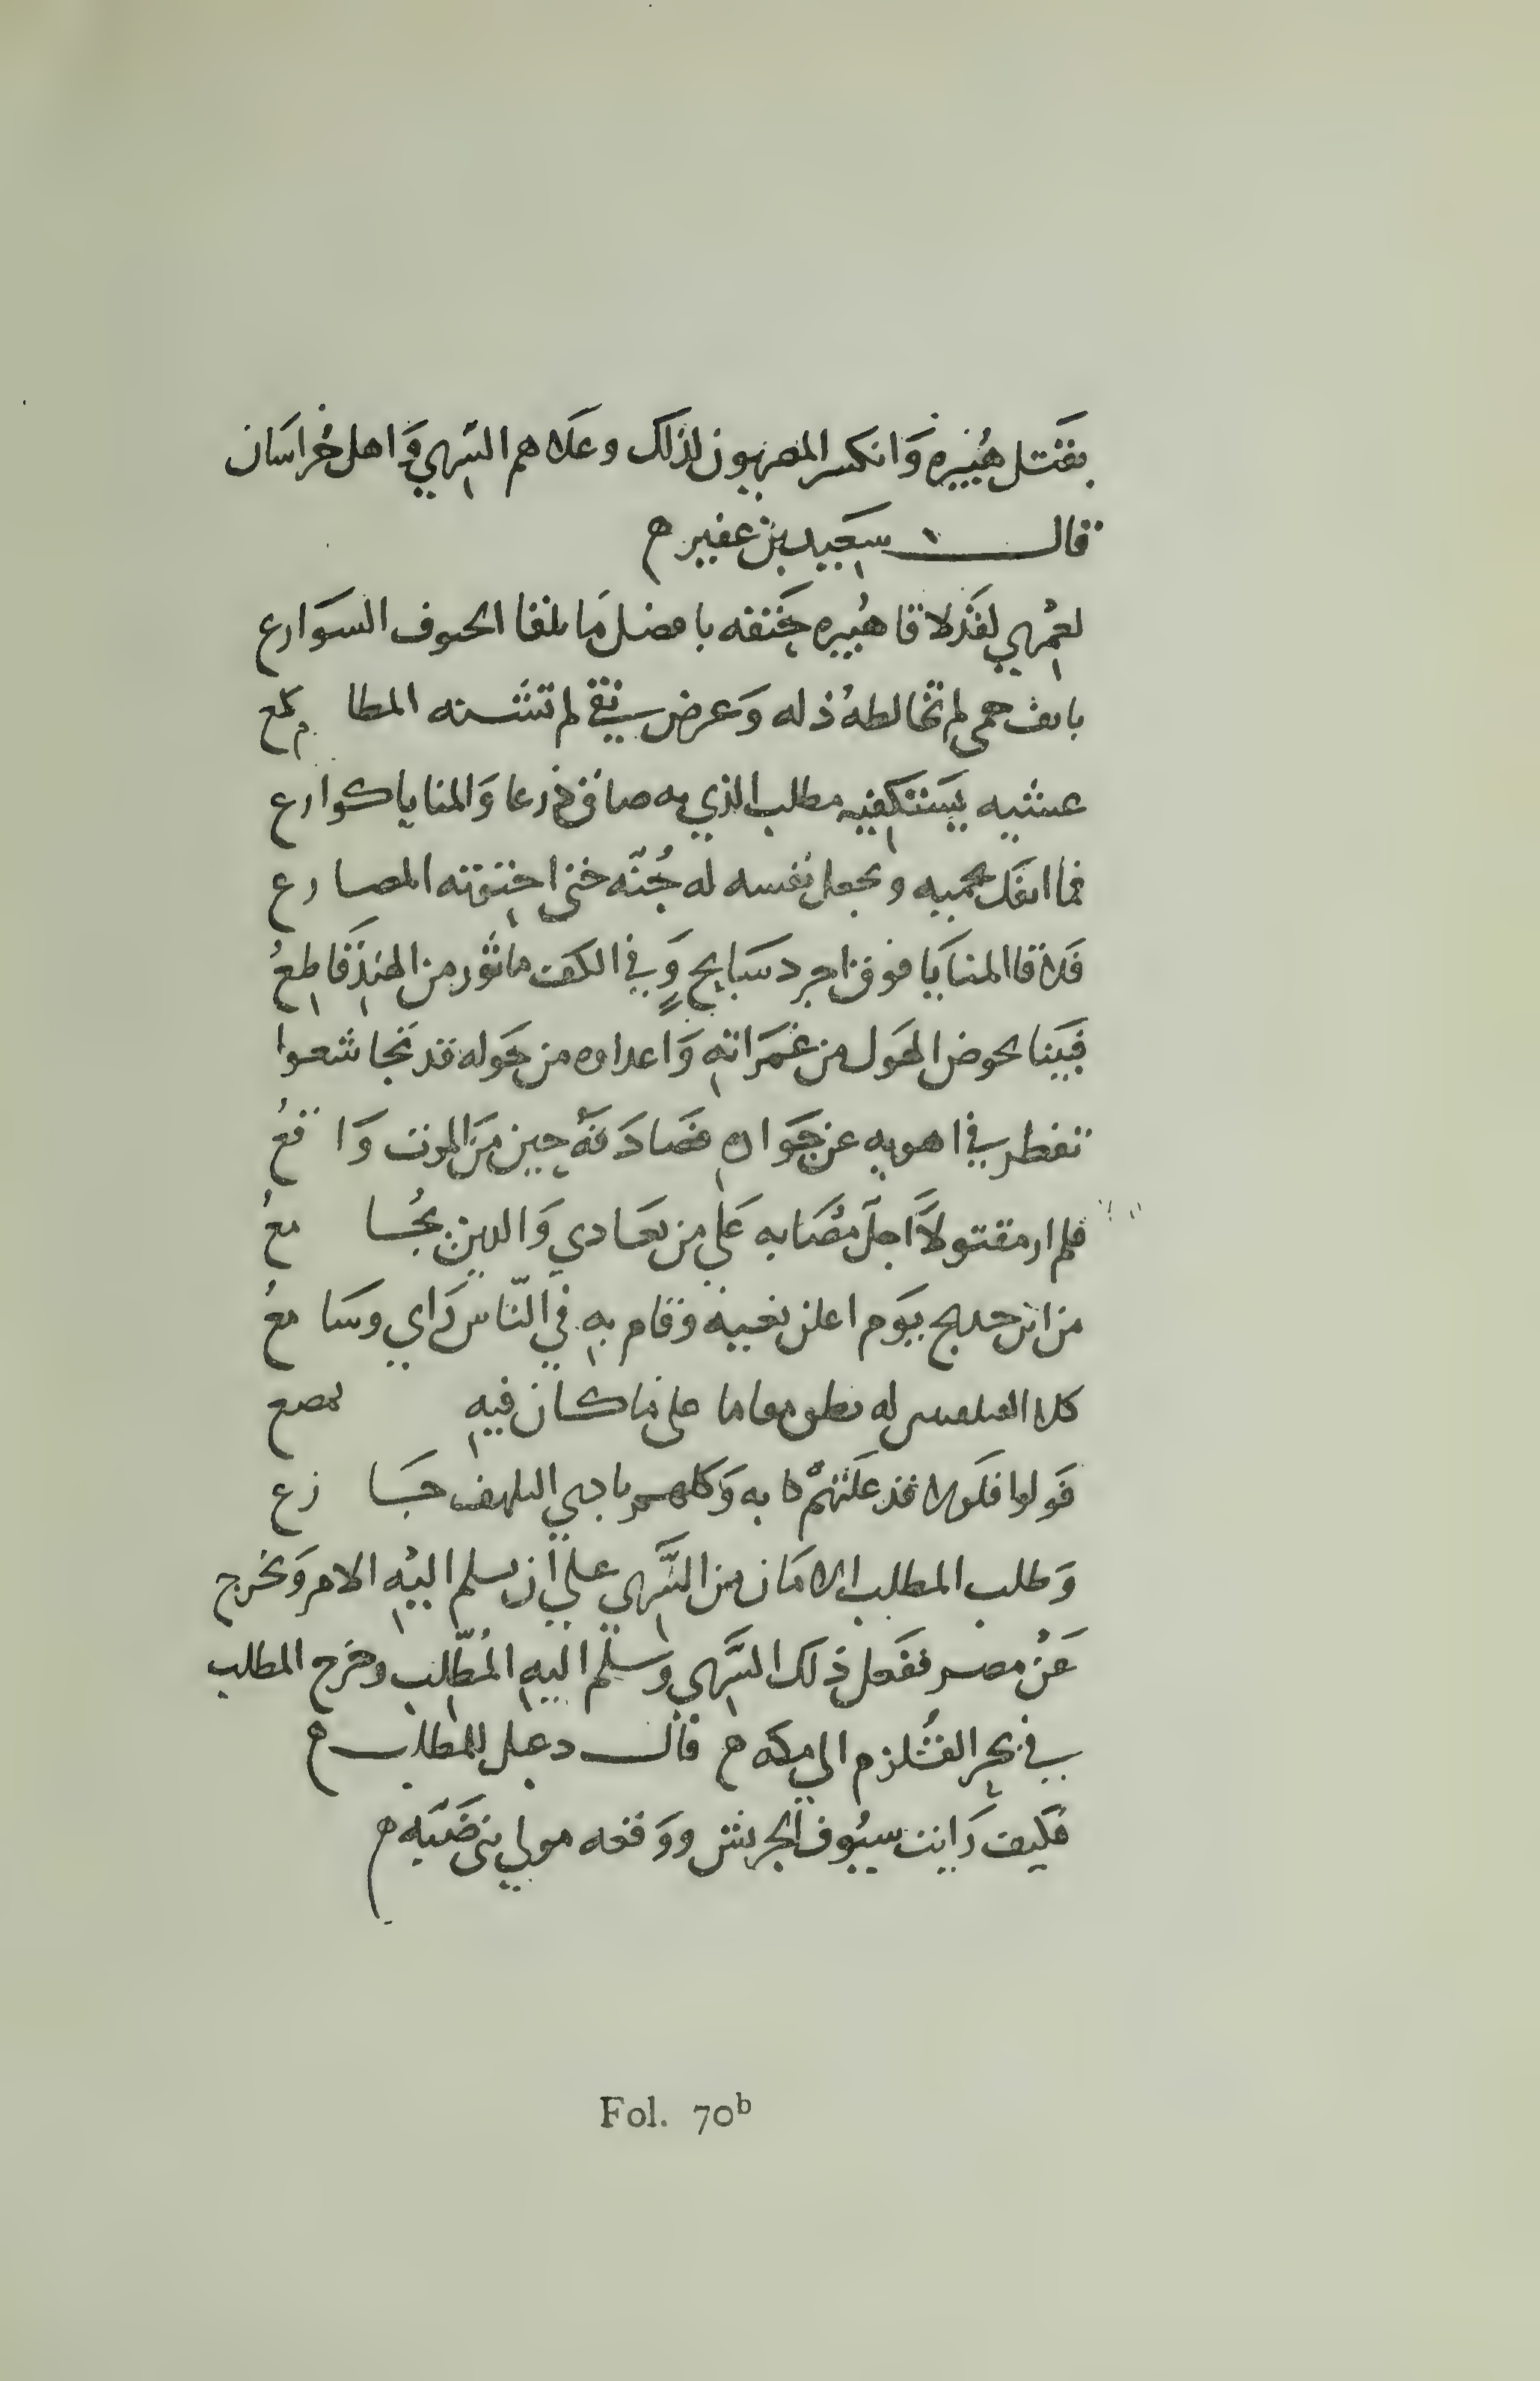 بقتل هُبَيْره وَانكسر المصريون لذلك وعَلاهم السَّري وَاهل خُراسَان
قال سعَيد بن عفير ه
لعَمْري لقَدْ لاقا هُبَيره حَتفه بافضل مَا يلقا الحتوف السوَارع
بانف حمى لم تخالطهُ ذله وَعرض نقي لم تشنه المطامع
عشيه يَستكفيه مطلب الذي به ضاق ذرعا وَالمنايا كوارع
فما انفك يحميه ويجعل نفسه له جُنّه حتى احتوته المصارع
فَلاقا المنايَا فوق اجرد سَابحٍ وَفي الكف ماثور من الهند قاطعُ
فبَينا يخوض الهَول من غَمَراتهِ وَاعداوه من حَوله قد تَجاشعوا
تفطر في اهويه عن جوَاده فصَادَفهُ حين منَ الموت وَاقعُ
فلم ار مقتولاً اجلّ مُصَابه عَلى من يعَادي وَالذين يُجَامعُ
من ابن حديج يَوم اعلن نعيه وقام بهِ في النّاس رَاي وسَامعُ
كلا له مقاما على ما كان فيهِ
فولوا فلولا قد عَلتهُمْ كابه وَكلهم بادي التلهف جَازع
وَطلب المطلب الامَان من السَّري علي ان يسلم اليْهِ الامر وَيخرج
عَنْ مصر ففَعل ذلك السَّري وَسلّم اليهِ المُطّلب وخرج المطلب
في بحرِ القُلزم الي مكه ه قال دعبل للمطلب ه
فكَيف رَايت سيُوف الجريش ووَقعه مولي بني ضَبّه ه
Fol. 70b